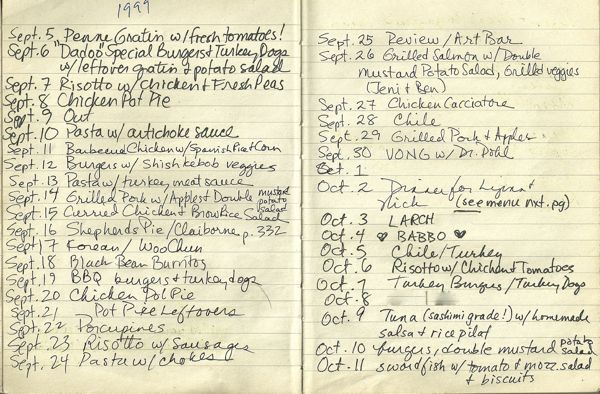 1999
Sept. 5 Penne Gratin w/fresh tomatoes!
Sept. 6 "Dadoo" Special Burgers & Turkey Dogs
w/leftover gratin & potato salad
Sept. 7 Risotto w/Chicken & Fresh Peas
Sept. 8 Chicken Pot Pie
Sept. 9 Out
Sept. 10 Pasta w/ artichoke sauce
Sept. 11 Barbecued Chicken w/Spanish Rice & Corn
Sept. 12 Burgers w/ Shishkebob veggies
Sept. 13 Pasta w/ turkey meat sauce
Sept. 14 Grilled Pork w/Apples & Double mustard potato salad
Sept. 15 Curried Chicken & Brown Rice Salad
Sept. 16 Shepherds Pie / Claiborne p. 332
Sept 17 Korean / Woo Chun
Sept. 18 Black Bean Burritos
Sept. 19 BBQ burgers & turkey dogs
Sept. 20 Chicken Pot Pie
Sept. 21 Pot Pie Leftovers
Sept. 22 Porcupines
Sept. 23 Risotto w/ Sausages
Sept. 24 Pasta w/ chokes
Sept. 25 Review / Art Bar
Sept. 26 Grilled Salmon w/ Double
mustard Potato Salad, Grilled veggies
(Jeni & Ben)
Sept. 27 Chicken Cacciatore
Sept. 28 Chile
Sept. 29 Grilled Pork & Apples
Sept. 30 VONG w/ Dr. Pohl
Oct. 1
Oct. 2 Dinner for Lynn &
Nick (see menu nxt. pg)
Oct. 3 LARCH
Oct. 4 ♥ BABBO ♥
Oct. 5 Chile / Turkey
Oct. 6 Risotto w/ Chicken & Tomatoes
Oct. 7 Turkey Burgers / Turkey Dogs
Oct. 8
Oct. 9 Tuna (sashimi grade!) w/ homemade
salsa & rice pilaf
Oct. 10 burgers, double mustard potato salad
Oct. 11 swordfish w/ tomato & mozz. salad
& biscuits